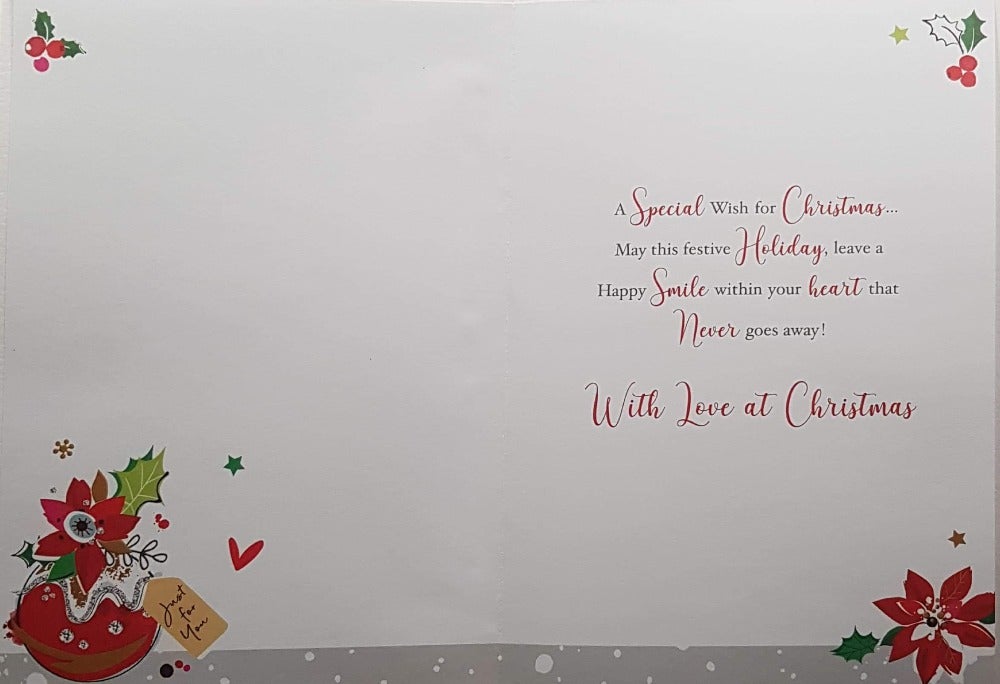 A Special Wish for Christmas...
May this festive Holiday, leave a
Happy Smile within your heart that
Never goes away!
With Love at Christmas
Just
for
You